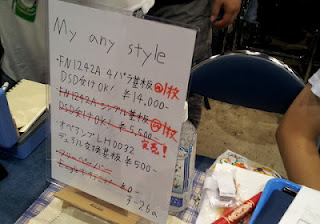 My any style
・FN1242A 4パラ基板 @1枚
DSD分けOK! ¥14,000-
FN1242A シングル基板
DSD分けOK! ¥5,500-
オペアンプ LH0032 完売!
デュアル交換基板 ¥500-
¥0-
3-26a